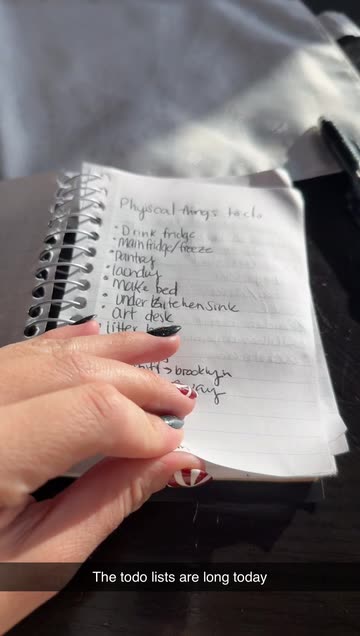 Physical things to do
• Drink fridge
• Main fridge/freeze
• pantry
• laundry
• make bed
• under kitchen sink
• art desk
litter
> brooklyn
The todo lists are long today